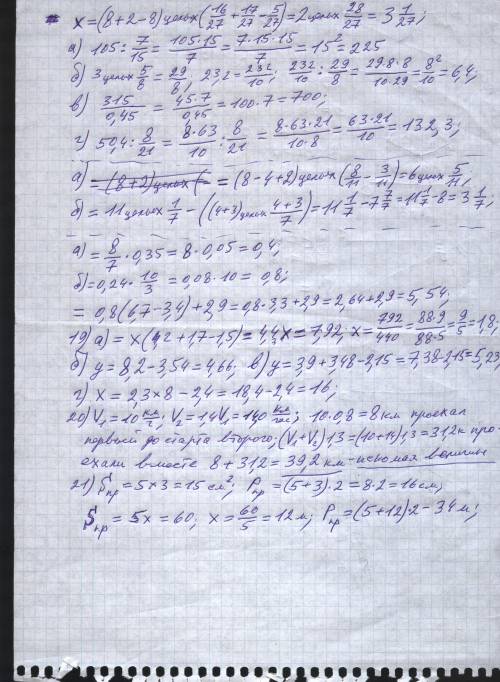 x = (8+2-8) целых (16/27 + 17/27 - 5/27) = 2 целых 28/27 = 3 1/27;
а) 105 : 7/15 = 105·15/7 = 7·15·15/7 = 15² = 225
б) 3 целых 5/8 = 29/8, 23,2 = 232/10; 232/10 : 29/8 = 29·8·8/10·29 = 8²/10 = 6,4;
в) 315/0,45 = 45·7/0,45 = 100·7 = 700;
г) 50,4 : 8/21 = 8·63/10 : 8/21 = 8·63·21/10·8 = 63·21/10 = 132,3;
а) = (8+2) целых ( = (8-4+2) целых (8/11 - 3/11) = 6 целых 5/11,
б) = 11 целых 1/7 - ((4+3) целых 4+3/7) = 11 1/7 - 7 7/7 = 11 1/7 - 8 = 3 1/7,
а) = 8/7 · 0,35 = 8·0,05 = 0,4;
б) = 0,24 · 10/3 = 0,08·10 = 0,8;
= 0,8(6,7-3,4)+2,9 = 0,8·3,3+2,9 = 2,64+2,9 = 5,54.
19) а) = x(4,2+1,7-1,5) = 4,4x = 7,92, x = 792/440 = 88·9/88·5 = 9/5 = 1,8,
б) y = 8,2-3,54 = 4,66; в) y = 3,9+3,48-2,15 = 7,38-2,15 = 5,23
г) x = 2,3×8-2,4 = 18,4-2,4 = 16;
20) V₁ = 10 км/г; V₂ = 1,4V₁ = 14,0 км/час; 10·0,8 = 8 км проехал
первый до старта второго. (V₁+V₂)1,3 = (10+14)1,3 = 31,2 к про-
ехали вместе 8+31,2 = 39,2 км - искомая величина
21) Sпр = 5×3 = 15 см², Pпр = (5+3)·2 = 8·2 = 16 см,
Sпр = 5x = 60; x = 60/5 = 12 м; Pпр = (5+12)·2 - 34 м;